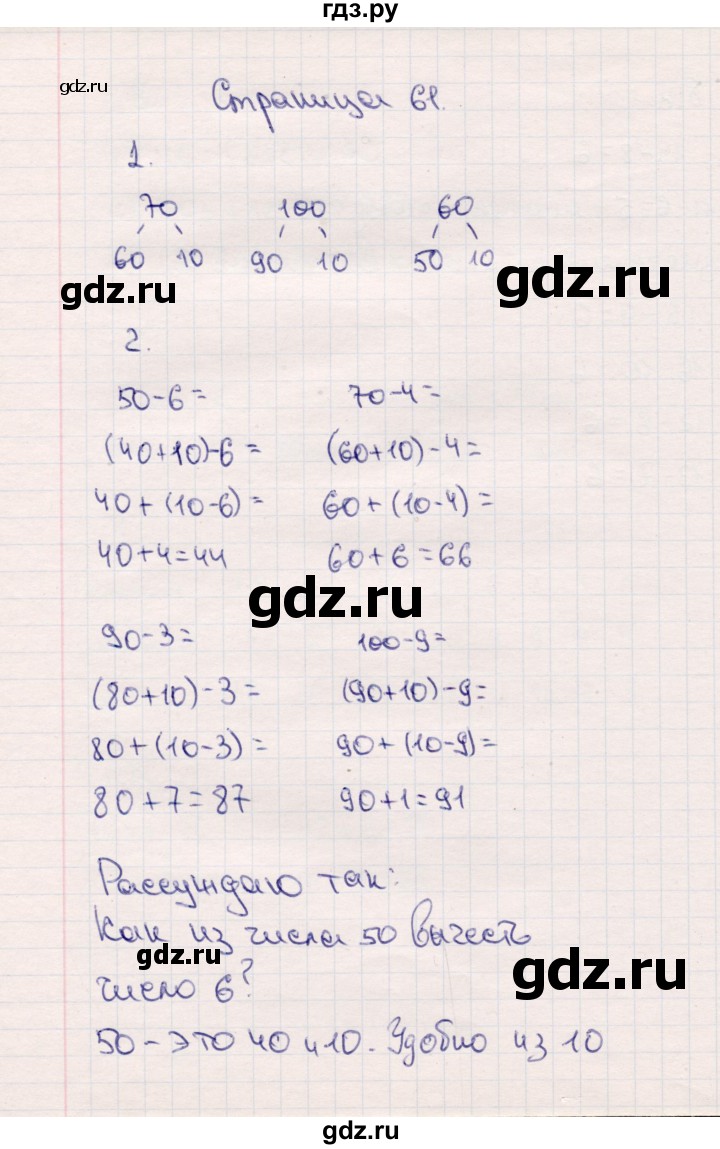 гдз.ру
gdz.ru
Страница 61.
1.
70 100 60
60 10 90 10 50 10
gdz.ru
gdz.ru
2.
50-6= 70-4=
(40+10)-6= (60+10)-4=
40+(10-6)= 60+(10-4)=
40+4=44 60+6=66
gdz.ru
90-3= 100-9=
(80+10)-3= (90+10)-9=
80+(10-3)= 90+(10-9)=
80+7=87 90+1=91
Рассуждаю так:
Как из числа 50 вычесть
gdz.ru
gdz.ru
число 6?
50-это 40 и 10. Удобно из 10
gdz.ru